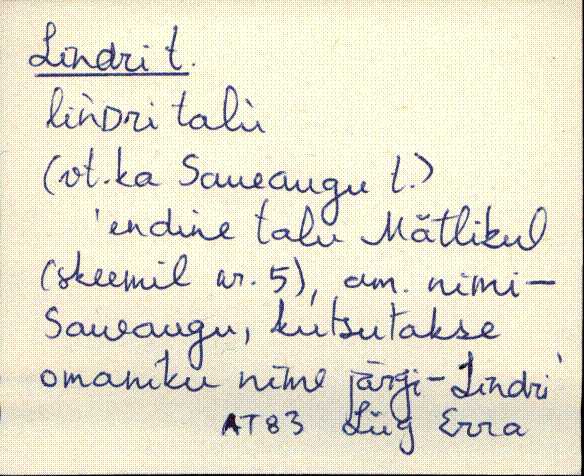 Lindri t.
lìnDri talù
(vt. ka Saueaugu t.)
'endine talu Mätlikul
(skeemil nr. 5), am. nimi-
Saueaugu, kutsutakse
omaniku nime järgi-Lindri'
AT83 Lüg Erra